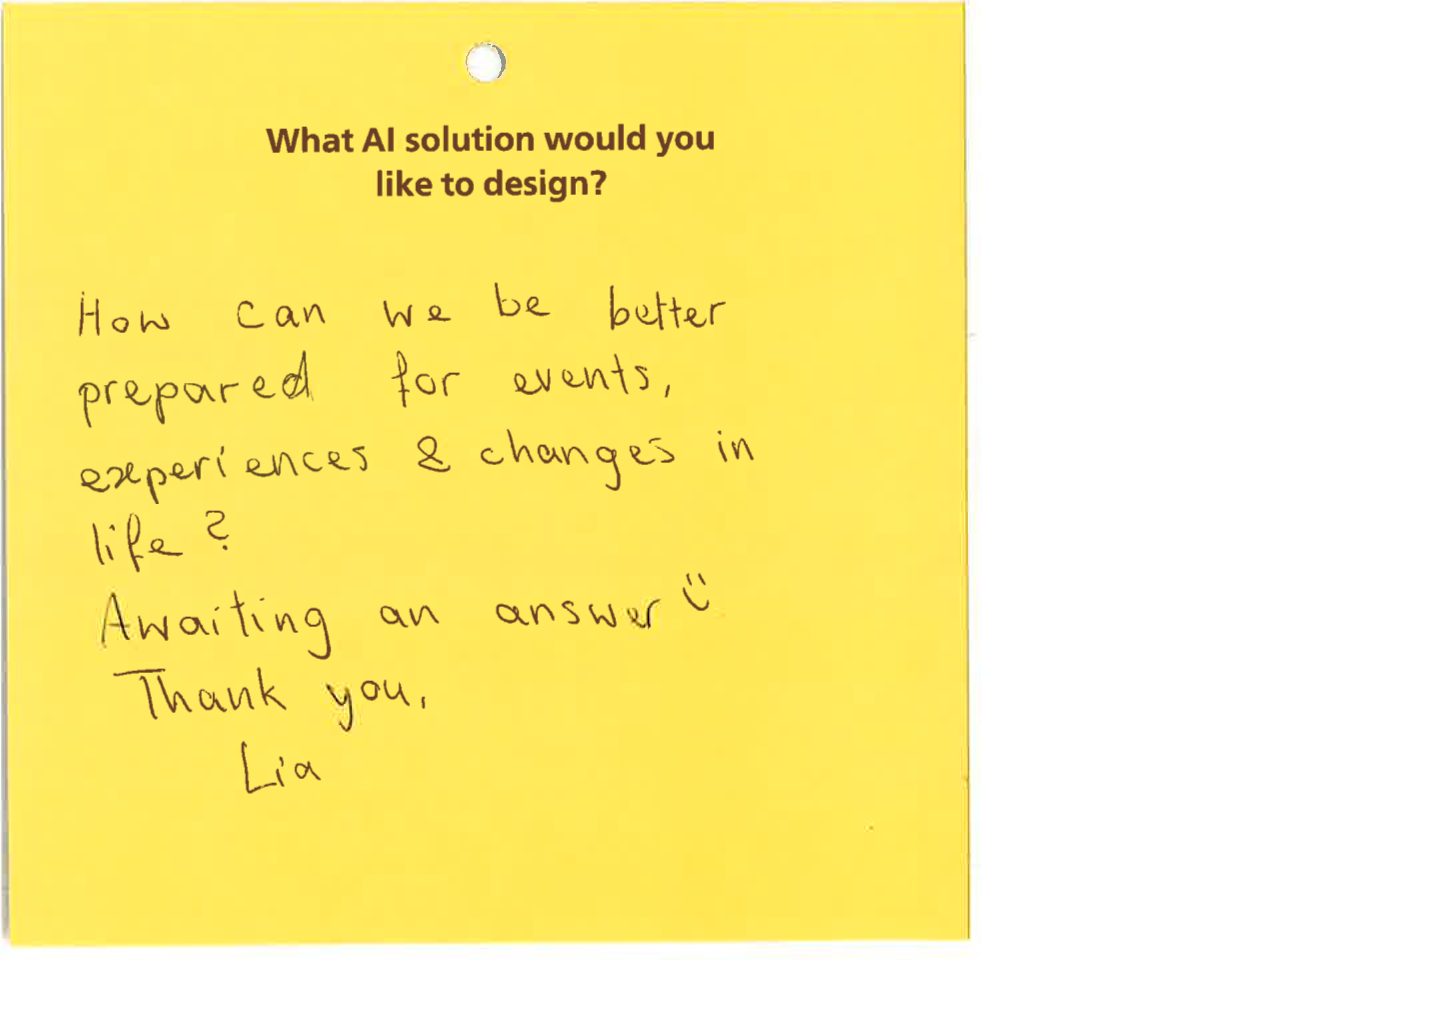 What AI solution would you
like to design?
How can we be better
prepared for events,
experiences & changes in
life?
Awaiting an answer ü
Thank you,
Lia